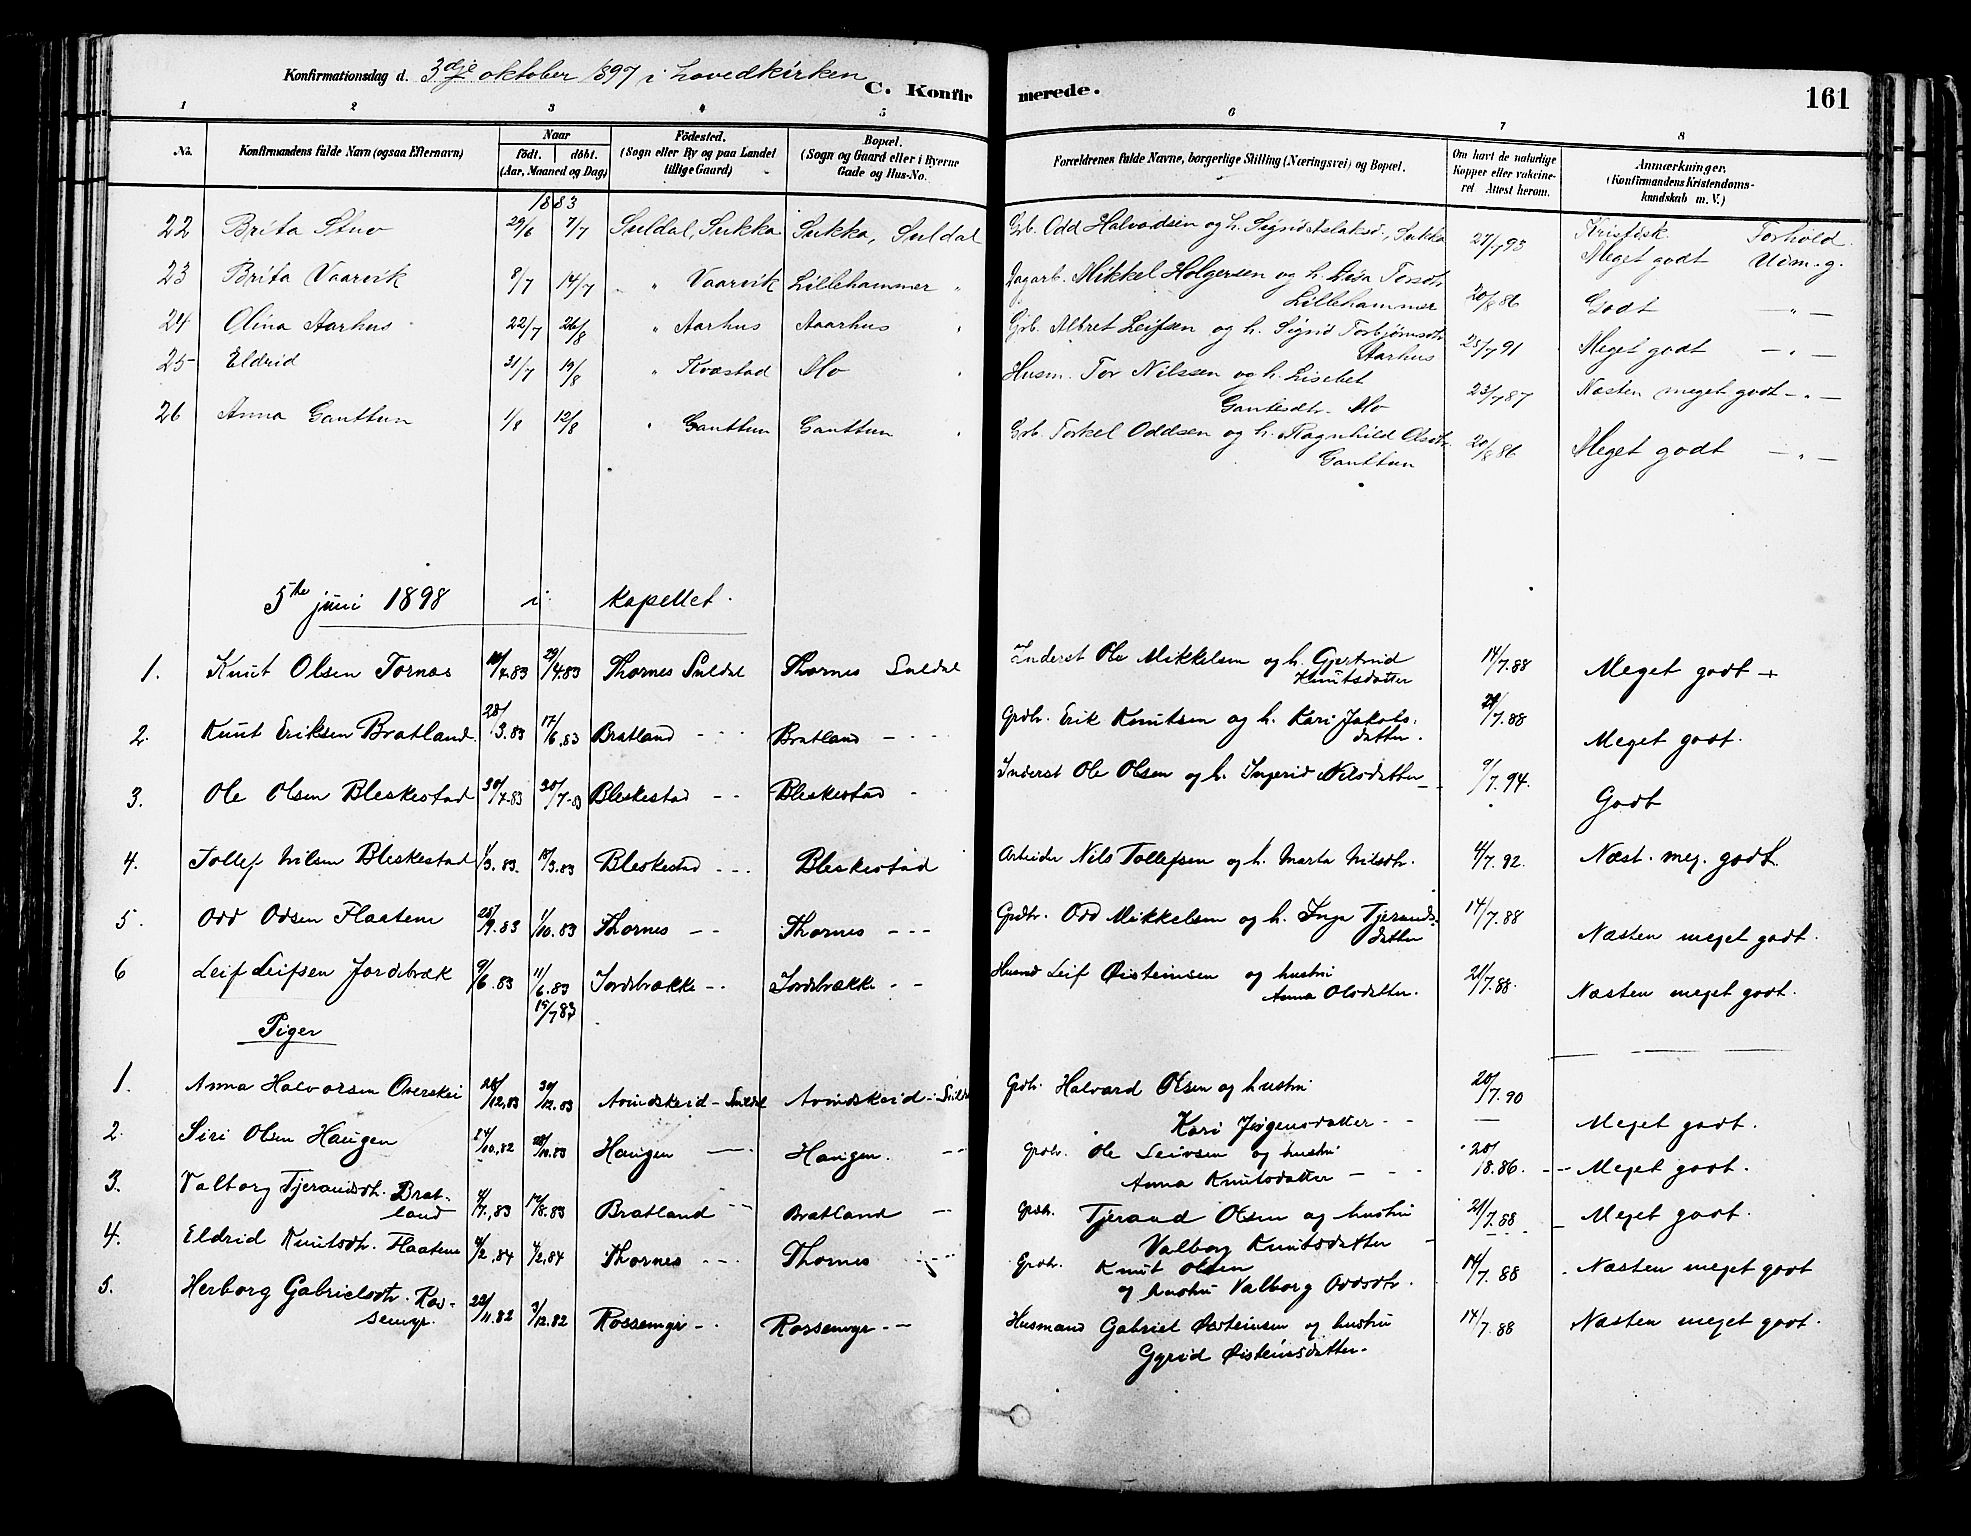 Konfirmationsdag d. 3dje oktober 1897 i hovedkirken
C. Konfirmerede.
161
1 2 3 4 5 6 7 8
No. Konfirmandens fulde Navn (ogsaa Efternavn) Naar födt. döbt. (Aar, Maaned og Dag) Födested. (Sogn eller By og paa Landet tillige Gaard) Bopæl. (Sogn og Gaard eller i Byerne Gade og Hus-No. Forældrenes fulde Navne, borgerlige Stilling (Næringsvei) og Bopæl. Om havt de naturlige Kopper eller vakcineret Attest herom. Anmærkninger. (Konfirmandens Kristendomskundskab m. V.)
1883
Kristdsk. Forhold.
22 Brita Stuv 29/6 7/7 Suldal, Sukka Sukka, Suldal Grb. Odd Halvordsen og h. Sigrid Aslaksd., Sukka 27/7 93 Meget godt Udm. g.
23 Brita Vaarvik 8/7 14/7 " Vaarvik Lillehammer " Dagarb. Mikkel Holgersen og h. Lisa Torsdtr
Lillehammer 20/8 86 Godt — " —
24 Olina Aarhus 22/7 26/8 " Aarhus Aarhus " Grb. Albret Leifsen og h. Sigrid Torbjørnsdtr
Aarhus 25/7 91 Meget godt — " —
25 Eldrid 31/7 19/8 " Kvæstad Mo " Husm. Tor Nilssen og h. Lisebet
Gautesdtr. Mo 23/7 87 Næsten meget godt — " —
26 Anna Gauttun 1/8 12/8 " Gauttun Gauttun " Grb. Torkel Oddsen og h. Ragnhild Olsdtr
Gauttun 20/8 86 Meget godt — " —
5te juni 1898 i kapellet.
1. Knut Olsen Tornæs /4.83 29/4.83 Thornes Suldal Thornes Suldal Inderst Ole Mikkelsen og h. Gjertrud
Knutsdatter 14/7.88 Meget godt +
2. Knut Eriksen Bratland 28/3.83 17/6.83 Bratland - - - Bratland - - - Grdbr. Erik Knutsen og h. Kari Jakobs-
datter. 21/7.88 Meget godt.
3. Ole Olsen Bleskestad 30/4.83 20/7.83 Bleskestad - - Bleskestad - Inderst Ole Olsen og h. Ingerid Nilsdatter - - 9/7.94. Godt
4. Tollef Nilsen Bleskestad 1/3.83. 18/3.83 Bleskestad - - - Bleskestad Arbeider Nils Tollefsen og h. Marta Nilsdtr. 4/7.92. Næst. meg. godt.
5. Odd Odsen Flaatene 25/9.83 1/10.83 Thornes - - Thornes - - - Grdbr. Odd Mikkelsen og h. Inga Tjerands-
datter 14/7.88 Næsten meget godt.
6 Leif Leifsen Jordebræk 9/6.83 11/6.83 15/7.83 Jordebrække - - Jordebrække - - Husmd Leif Øisteinsen og hustru
Anna Olsdatter. 21/7.88. Næsten meget godt.
Piger
1. Anna Halvorsen Overskei 26/12.83 30/12.83 Avindskeid - Suldal Avindskeid - Suldal Grdbr. Halvard Olsen og hustru
Kari Jørgensdatter - - 20/7.90 Meget godt.
2. Siri Olsen Haugen 14/10.82 28/10.83 Haugen — Haugen. - - Grdbr. Ole Seivsen og hustru
Anna Knutsdatter — - - 20/8.86. - - Meget godt.
3. Valborg Tjerandsdt. Brat-
land 4/7.83 12/8.83 Bratland - - Bratland - - Grdbr. Tjerand Olsen og hustru
Valborg Knutsdatter - 21/7.88 Meget godt.
4. Eldrid Knutsdtr. Flaatene /2.84 /2.84 Thornes - - - Thornes - - - Grdbr. Knut Olsen
og hustru Valborg Oddsdtr. 14/7.88 Næsten meget godt
5. Herborg Gabrielsdtr. Ros-
semyr. 22/11.82 3/12.82 Rossemyr - - Rossemyr - - Husmand Gabriel Østeinsen og hustru
Gyrid Øisteinsdatter. 14/7.88 Næsten meget godt.